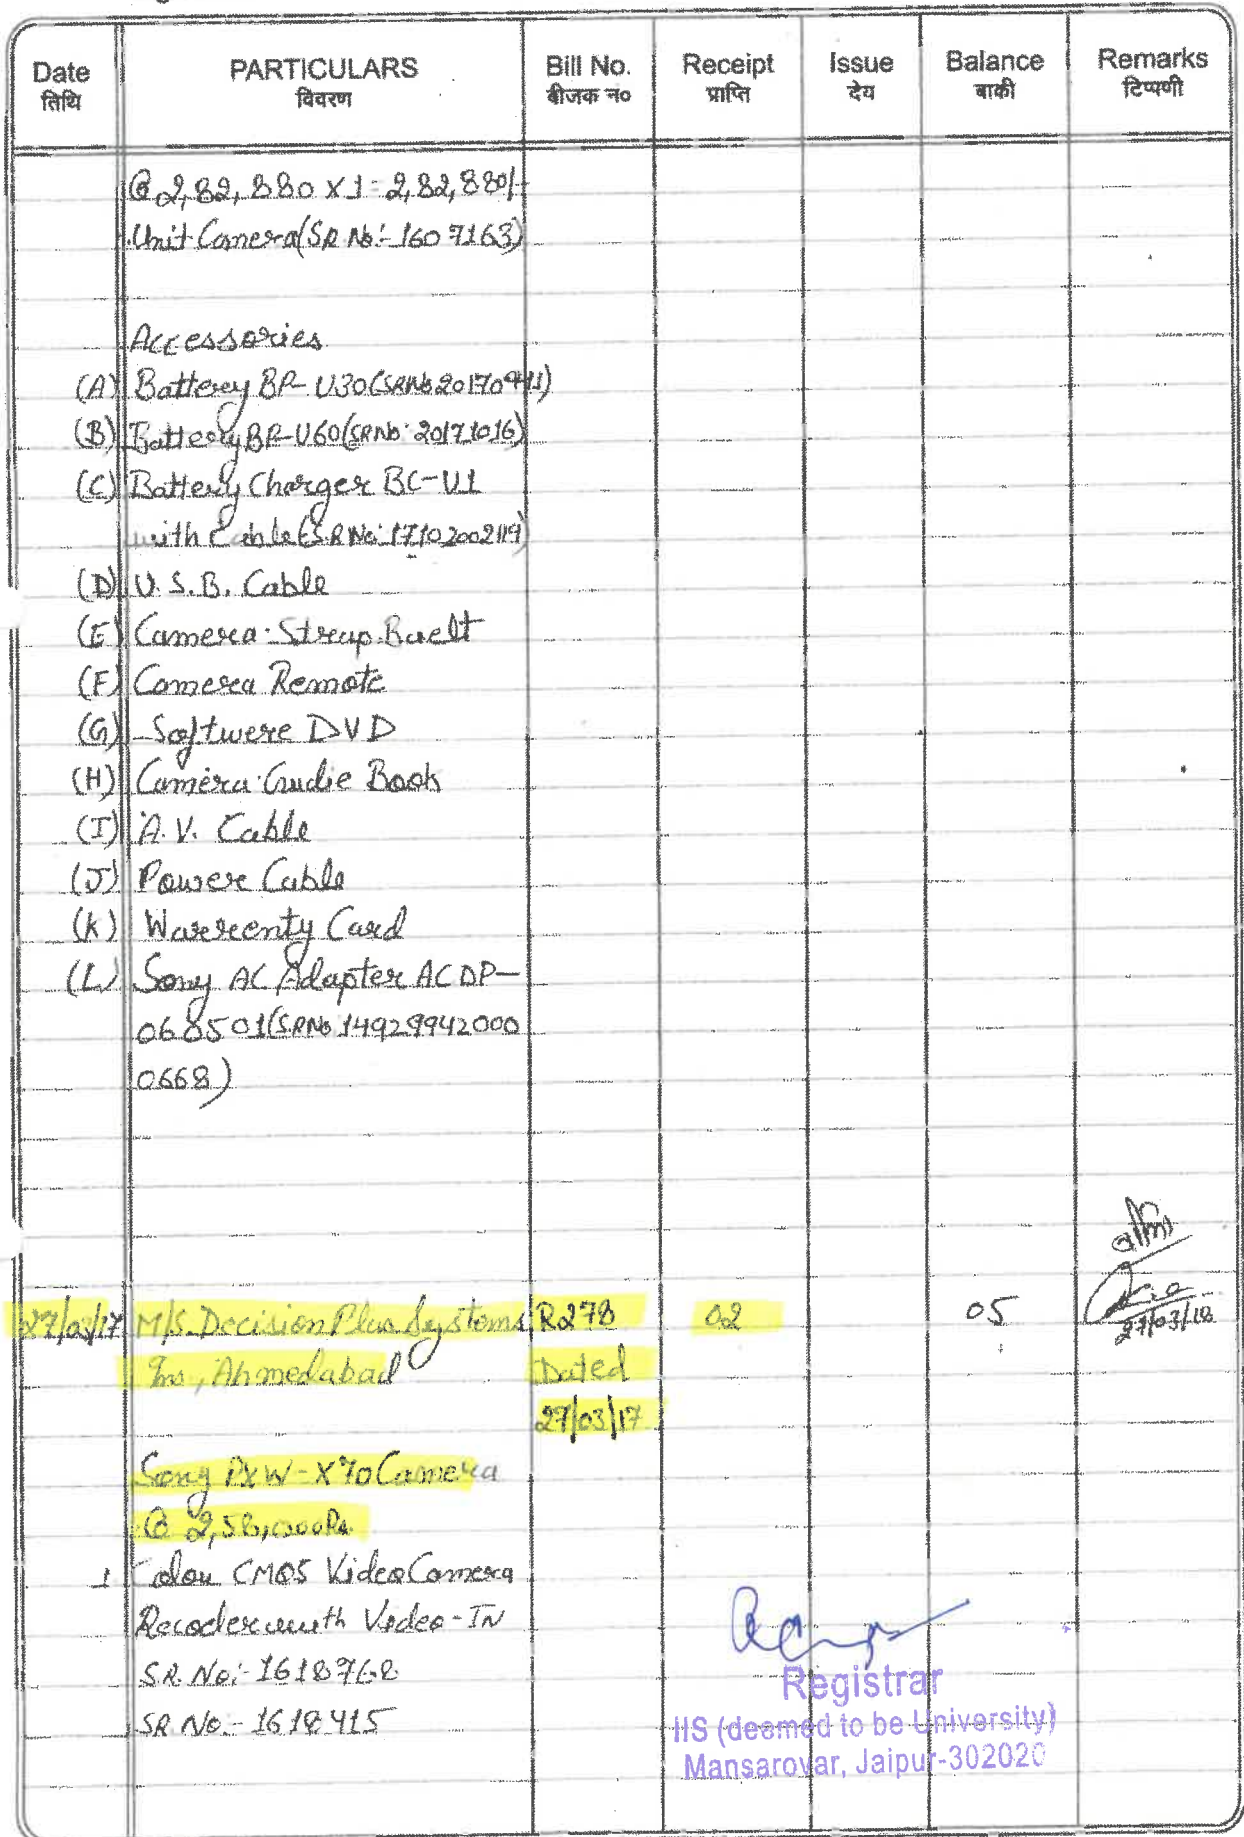 Date PARTICULARS Bill No. Receipt Issue Balance Remarks
तिथि विवरण बीजक न० प्राप्ति देय बाकी टिप्पणी
@ 2,82,880 x 1 = 2,82,880/-
Unit Camera (SR No:- 1607163)
Accessories
(A) Batterey BP-U30 (SRNo 20170911)
(B) Battery BP-U60 (SRNo: 20171016)
(C) Battery Charger BC-U1
with Cable (S.R No: 17102002119)
(D) U.S.B. Cable
(E) Camera Strap Buelt
(F) Camera Remote
(G) Softwere DVD
(H) Camera Gudie Book
(I) A.V. Cable
(J) Power Cable
(K) Warrenty Card
(L) Sony AC Adapter ACDP-
060S01 (S.RNo 14929942000
0668)
27/03/17 M/S. Decision Plus Systems R278 02 05
Ahmedabad Dated 27/03/18
27/03/17
Sony PXW-X70 Camera
@ 2,58,000Rs.
1 Colou CMOS Video Camera
Recoder with Video-IN
S.R. No:- 1618768
SR No.- 1618415
Registrar
IIS (deemed to be University)
Mansarovar, Jaipur-302020